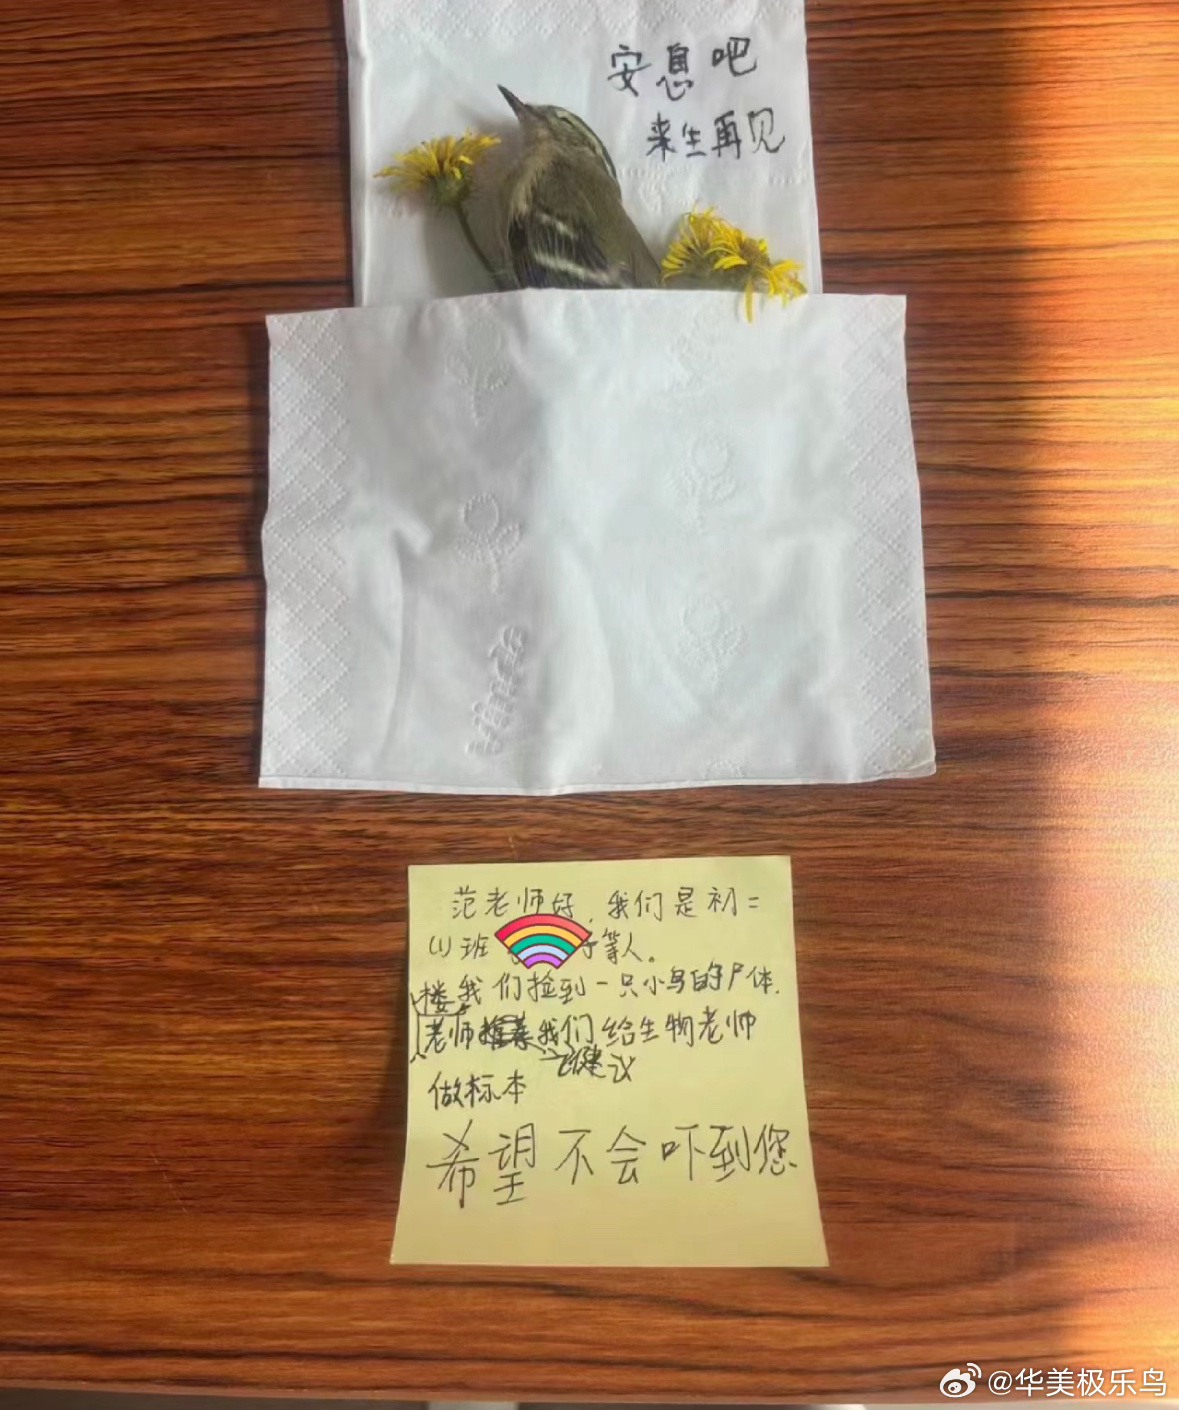 安息吧
来生再见
范老师好，我们是初二
(1)班 等人。
我们捡到一只小鸟的尸体.
老师 我们给生物老师
建议
做标本
希望不会吓到您
@华美极乐鸟